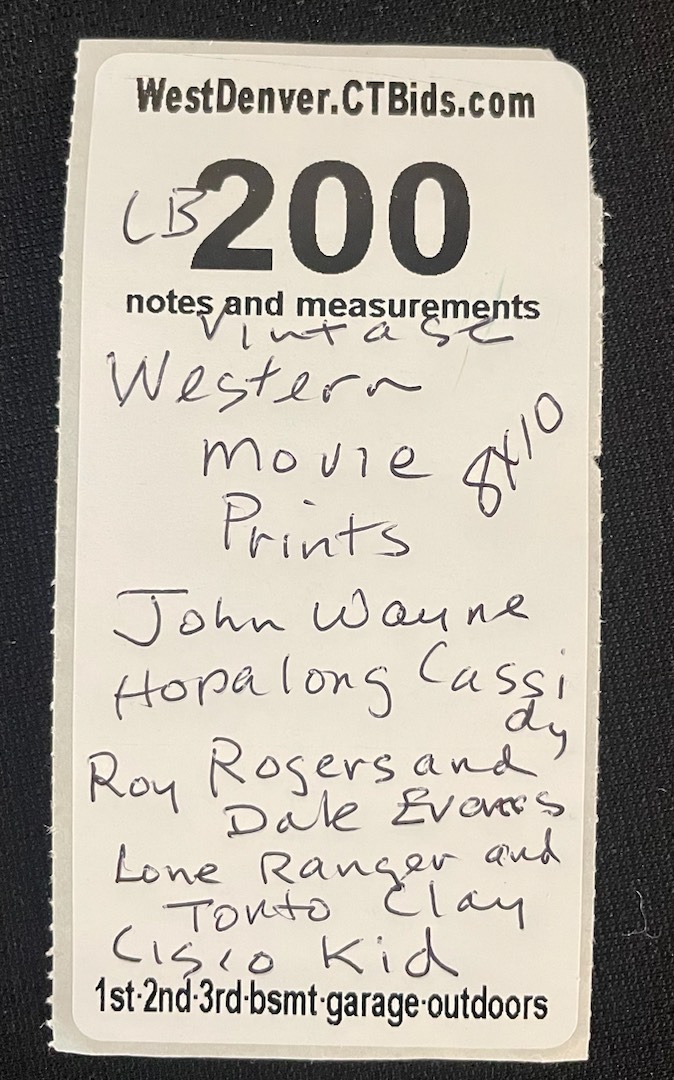 WestDenver.CTBids.com
CB 200
notes and measurements
Vintage
Western
Movie 8x10
Prints
John Wayne
Hopalong Cassi
dy
Roy Rogers and
Dale Evans
Lone Ranger and
Tonto Clay
Cisco Kid
1st·2nd·3rd·bsmt·garage·outdoors